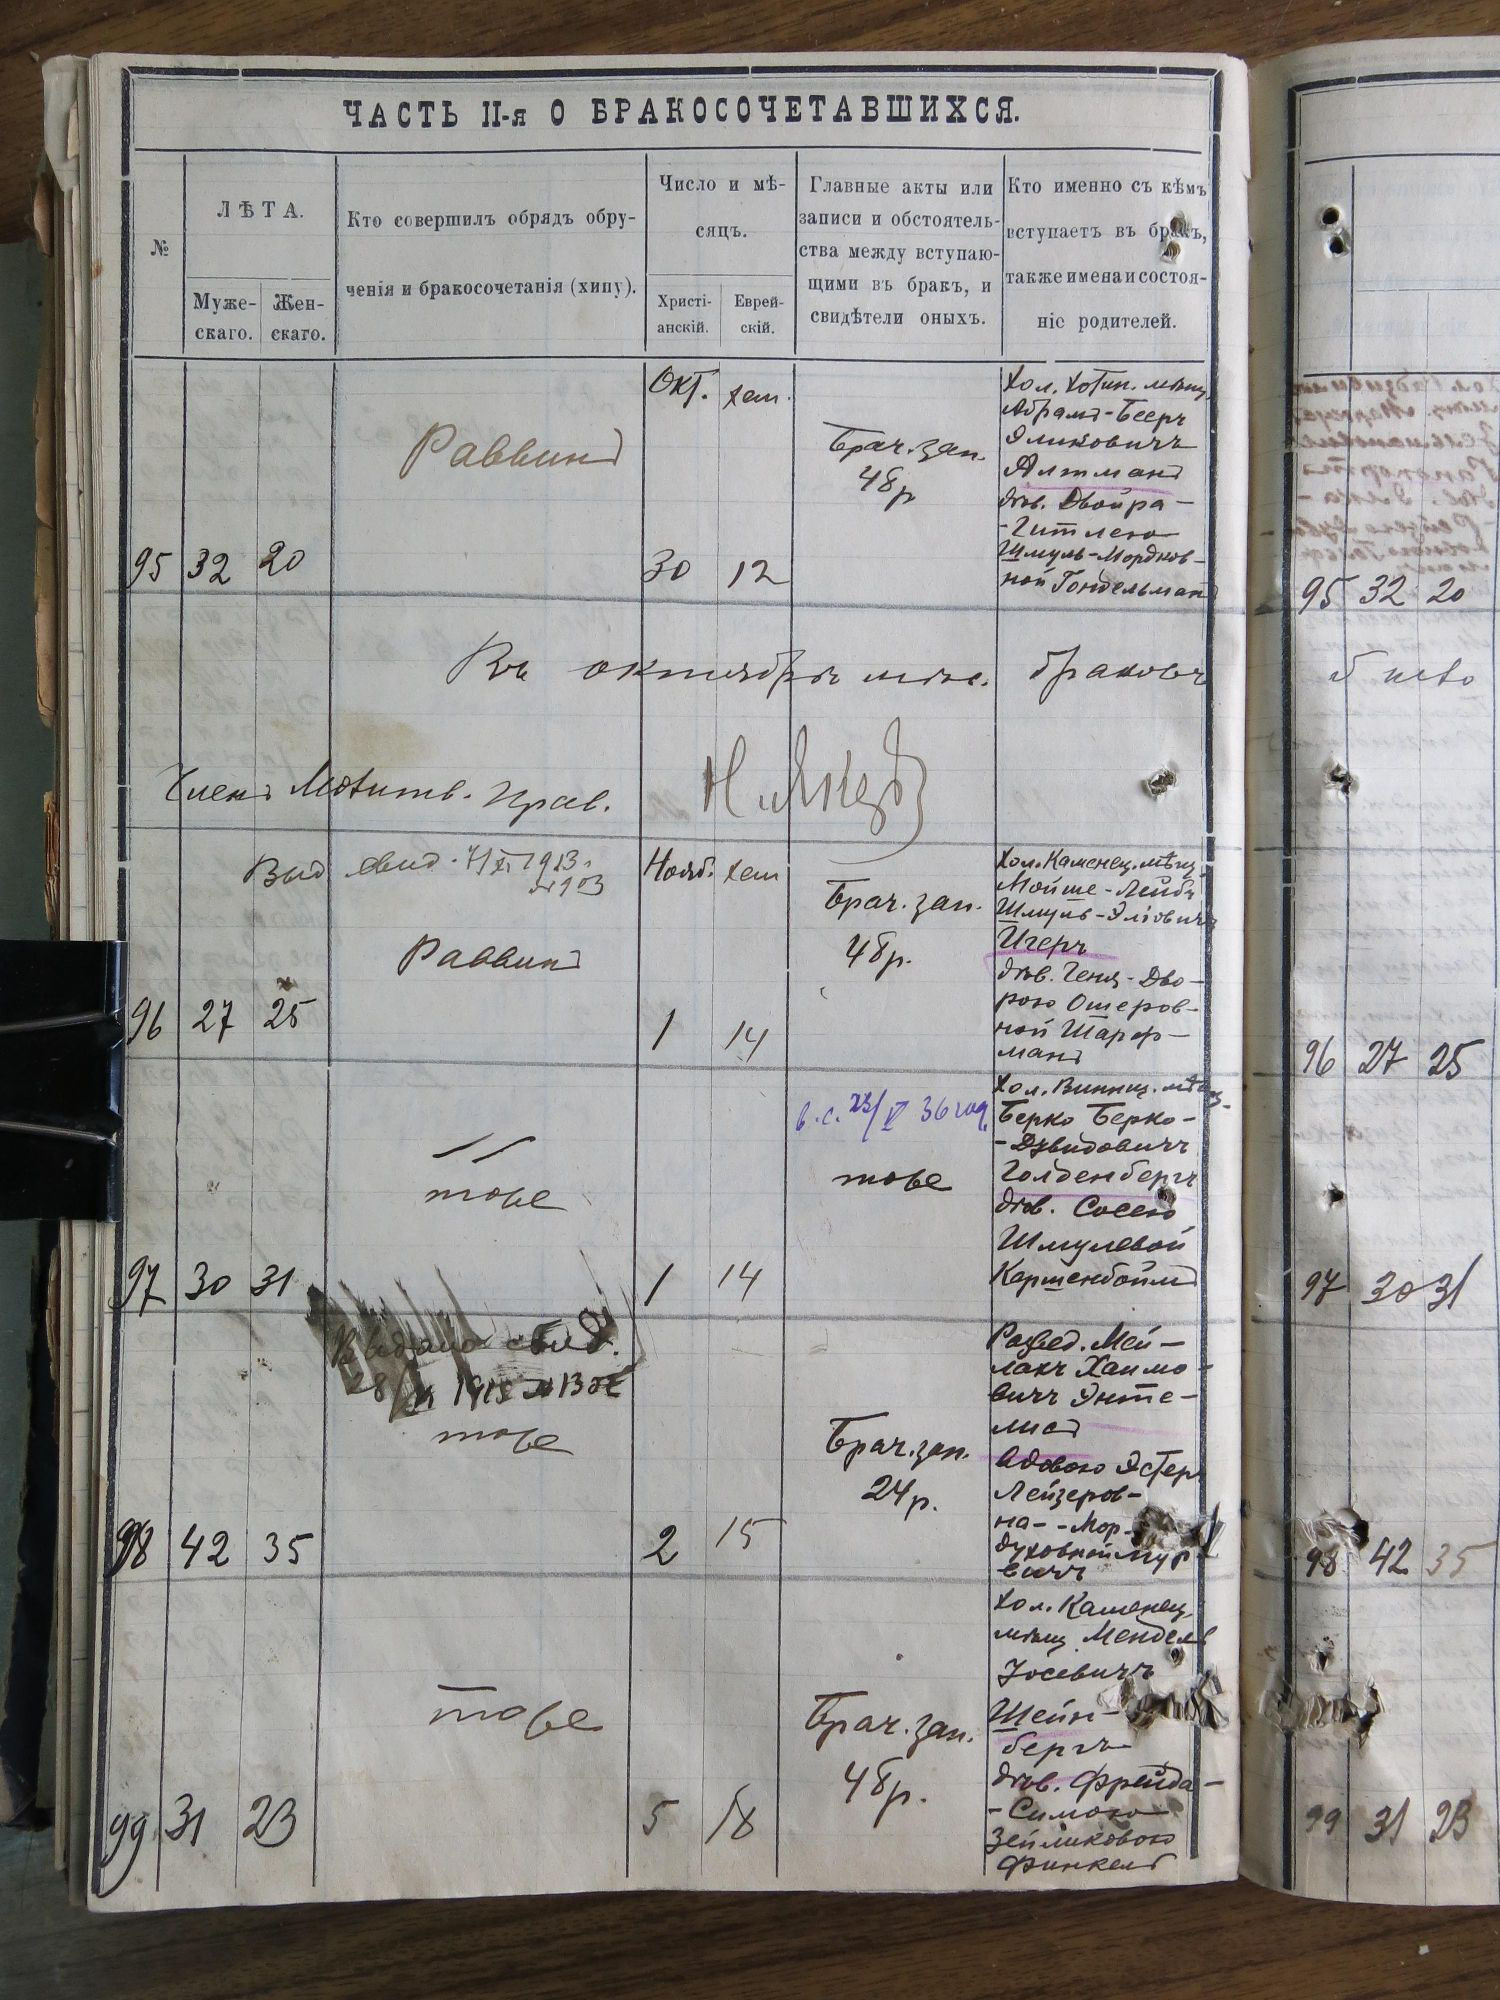 ЧАСТЬ II-я О БРАКОСОЧЕТАВШИХСЯ.
№
ЛѢТА.
Муже-
скаго.
Жен-
скаго.
Кто совершилъ обрядъ обру-
ченія и бракосочетанія (хипу).
Число и мѣ-
сяцъ.
Христі-
анскій.
Еврей-
скій.
Главные акты или
записи и обстоятель-
ства между вступаю-
щими въ бракъ, и
свидѣтели оныхъ.
Кто именно съ кѣмъ
вступаетъ въ бракъ,
также имена и состоя-
ніе родителей.
95 32 20
Раввинъ
Окт. хеш.
30 12
Брач. зап.
48 р
Хол. Хотин. мѣщ.
Абрамъ-Бееръ
Эликовичъ
Алтманъ
дѣв. Двойра-
-Гитлею
Шмуль-Мордков-
ной Гондельманъ
Въ октябрѣ мѣс. браковъ
Членъ Молитв. Прав.
96 27 25
Выд свид. 7/XI 1913.
№ 903
Раввинъ
Нояб. хеш
1 14
Брач. зап.
48 р.
Хол. Каменец. мѣщ.
Мойше-Лейбъ
Шмуль-Эліовичъ
Игеръ
дѣв. Геня-Дво-
рою Ошеров-
ной Шараф-
манъ
97 30 31
тоже
1 14
в. с. 23/V 36 год.
тоже
Хол. Винниц. мѣщ.
Берко Берко-
-Дувидовичъ
Голденбергъ
дѣв. Сосею
Шмулевой
Каршенбоймъ
98 42 35
Выдано свид.
тоже
2 15
Брач. зап.
24 р.
Развед. Мей-
лахъ Хаимо-
вичъ Энте-
лисъ
вдовою Эстеръ
Лейзеров-
на- -Мор-
духовной Мур-
вичъ
99 31 23
тоже
5 18
Брач. зап.
48 р.
Хол. Каменец.
мѣщ Мендель
Іосевичъ
Шейн-
бергъ
дѣв. Фрейда-
-Симою
Зейликовою
Финкель
95 32 20
96 27 25
97 30 31
98 42 35
99 31 23